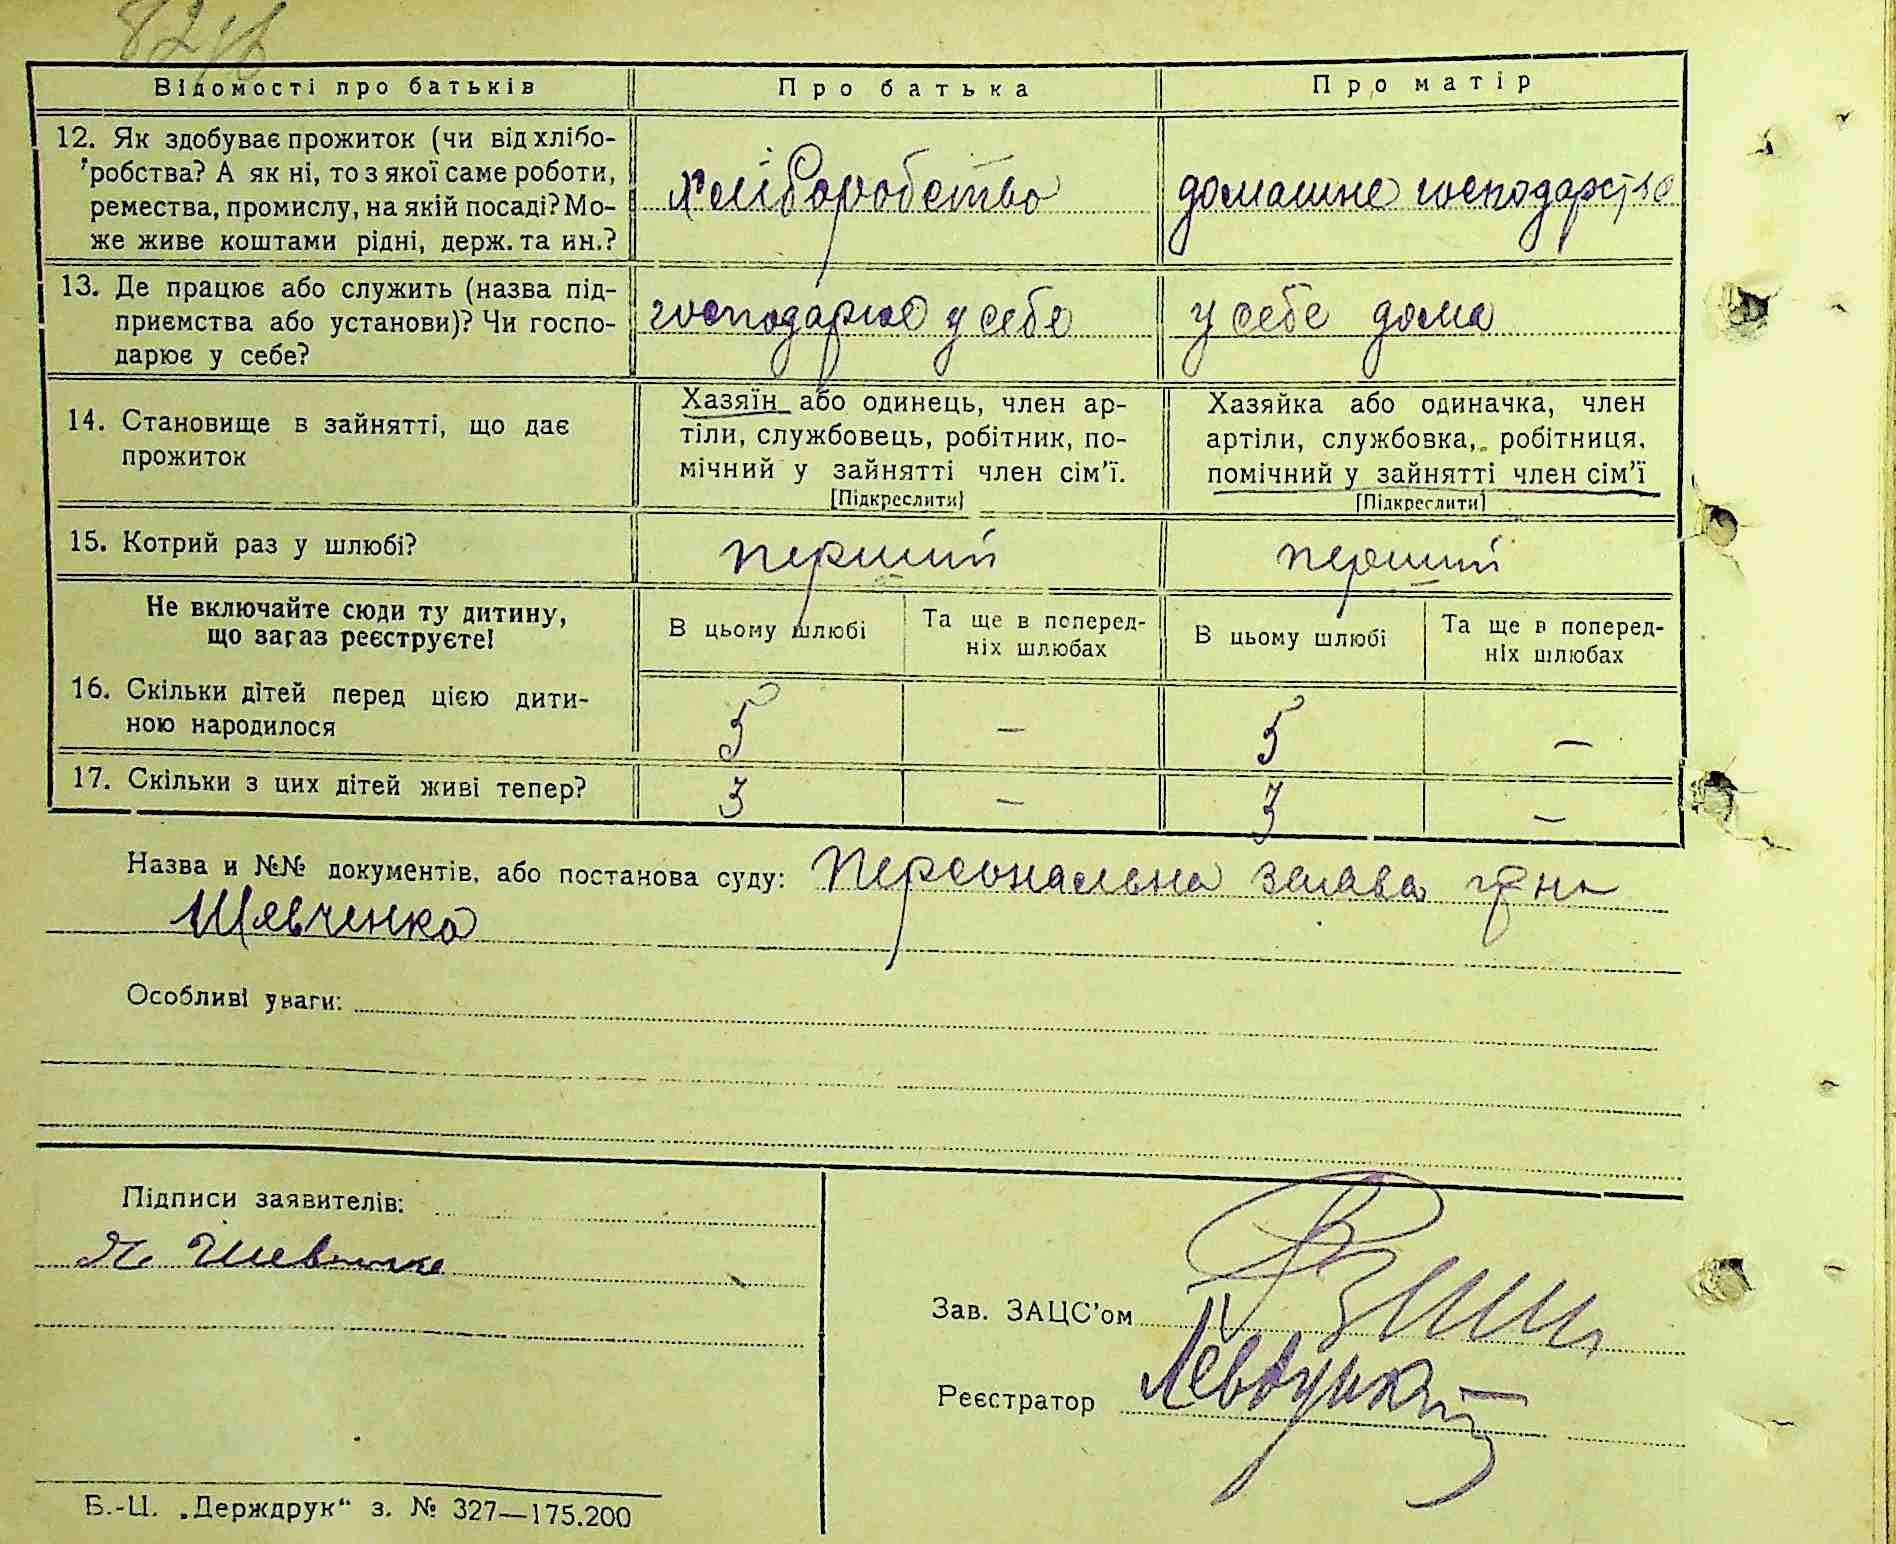 82зв
Відомості про батьків
Про батька
Про матір
12. Як здобуває прожиток (чи від хлібо-
робства? А як ні, то з якої саме роботи,
ремества, промислу, на якій посаді? Мо-
же живе коштами рідні, держ. та ин.?
хліборобство
домашнє господарство
13. Де працює або служить (назва під-
приємства або установи)? Чи госпо-
дарює у себе?
господарює у себе
у себе дома
14. Становище в зайнятті, що дає
прожиток
Хазяїн або одинець, член ар-
тіли, службовець, робітник, по-
мічний у зайнятті член сім'ї.
[Підкреслити]
Хазяйка або одиначка, член
артіли, службовка, робітниця,
помічний у зайнятті член сім'ї
[Підкреслити]
15. Котрий раз у шлюбі?
перший
перший
Не включайте сюди ту дитину,
що зараз реєструєте!
В цьому шлюбі
Та ще в поперед-
ніх шлюбах
В цьому шлюбі
Та ще в поперед-
ніх шлюбах
16. Скільки дітей перед цією дити-
ною народилося
5
–
5
–
17. Скільки з цих дітей живі тепер?
3
–
3
–
Назва и №№ документів, або постанова суду: Персональна заява гр-на
Шевченка
Особливі уваги:
Підписи заявителів:
Шевченко
Зав. ЗАЦС'ом
Реєстратор
Б.-Ц. „Держдрук“ з. № 327—175.200